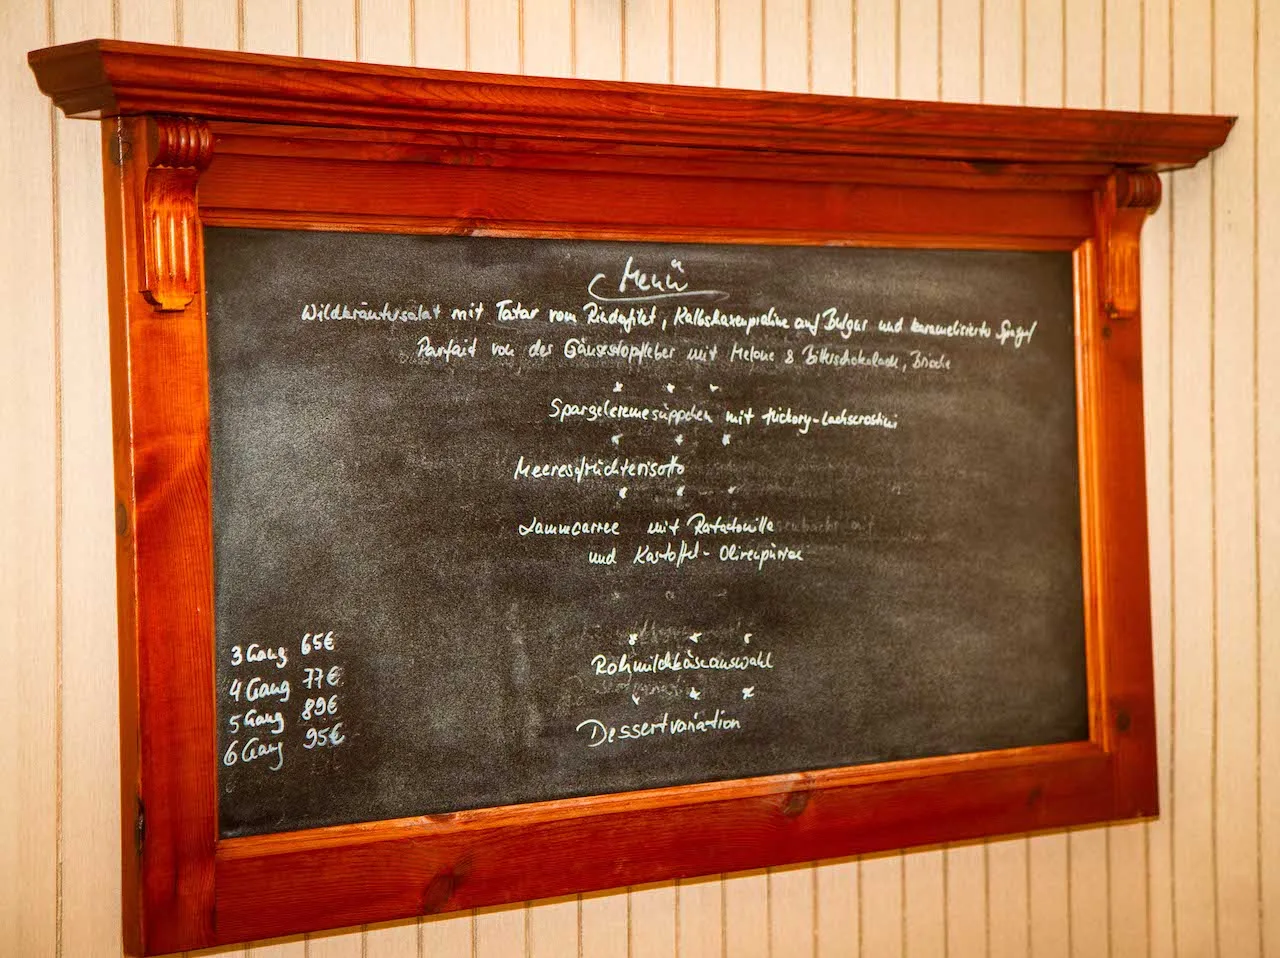 Menü
Wildkräutersalat mit Tatar vom Rindsfilet, Kalbshaxenpraline auf Bulgur und karamelisierter Spargel
Parfait von der Gänsestopfleber mit Melone & Bitterschokolade, Brioche
* * *
Spargelcremesüppchen mit Hickory-Lachscrostini
* * *
Meeresfrüchterisotto
* * *
Lammcarree mit Ratatouille
und Kartoffel-Olivenpürree
* * *
Rohmilchkäseauswahl
* * *
Dessertvariation
3 Gang 65€
4 Gang 77€
5 Gang 89€
6 Gang 95€